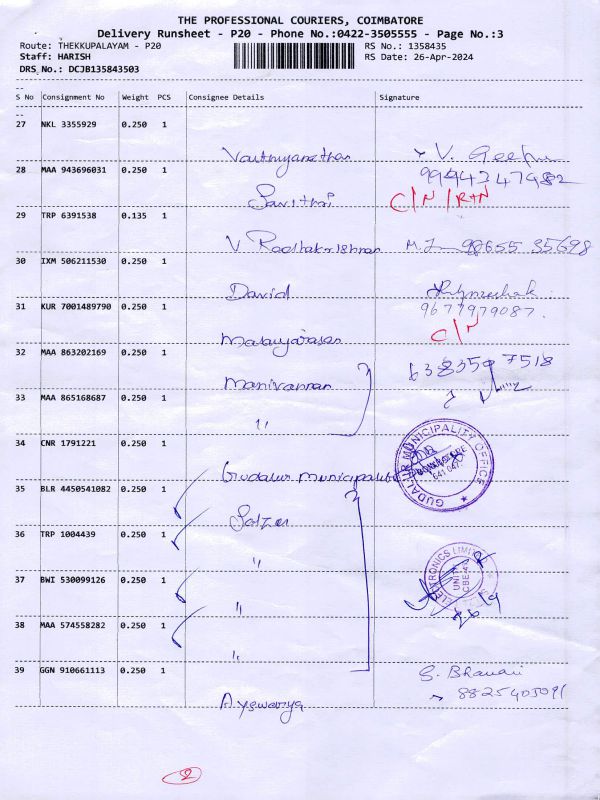 THE PROFESSIONAL COURIERS, COIMBATORE
Delivery Runsheet - P20 - Phone No.:0422-3505555 - Page No.:3
Route: THEKKUPALAYAM - P20 RS No.: 1358435
Staff: HARISH RS Date: 26-Apr-2024
DRS No.: DCJB135843503
S No Consignment No Weight PCS Consignee Details Signature
27 NKL 3355929 0.250 1
V. Geetha
28 MAA 943696031 0.250 1 9944347982
Savithri C/N/R+N
29 TRP 6391538 0.135 1
V Radhakrishnan 98655 35698
30 IXM 506211530 0.250 1
David
31 KUR 7001489790 0.250 1 9677979087.
C/N
32 MAA 863202169 0.250 1 638359 7518
Manivannan
33 MAA 865168687 0.250 1
"
34 CNR 1791221 0.250 1
Gudalur municipality GUDALUR MUNICIPALITY OFFICE
COIMBATORE
641 047
35 BLR 4450541082 0.250 1
Salzer
36 TRP 1004439 0.250 1
"
37 BWI 530099126 0.250 1
" UNIT
38 MAA 574558282 0.250 1
"
39 GGN 910661113 0.250 1 S. Bhavani
8825403091
Ayswarya
2